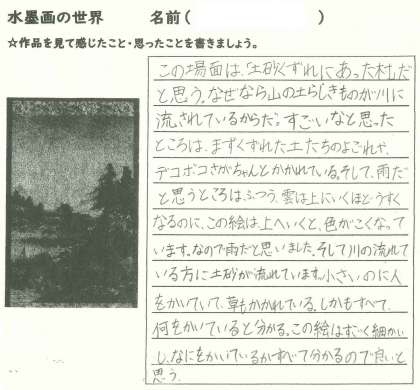 水墨画の世界　名前(　　　)
☆作品を見て感じたこと・思ったことを書きましょう。
この場面は、土砂くずれにあった村だ
と思う。なぜなら山の土らしきものが川に
流されているからだ。すごいなと思った
ところは、まずくずれた土たちのよごれや、
デコボコさがちゃんとかかれている。そして、雨だ
と思うところはふつう、雲は上にいくほどうすく
なるのに、この絵は上へいくと、色がこくなって
います。なので雨だと思いました。そして川の流れて
いる方に土砂が流れています。小さいのに人
をかいていて、草もかかれている。しかもすべて、
何をかいていると分かる。この絵はすごく細かい
し、なにをかいているかすべて分かるので良いと
思う.